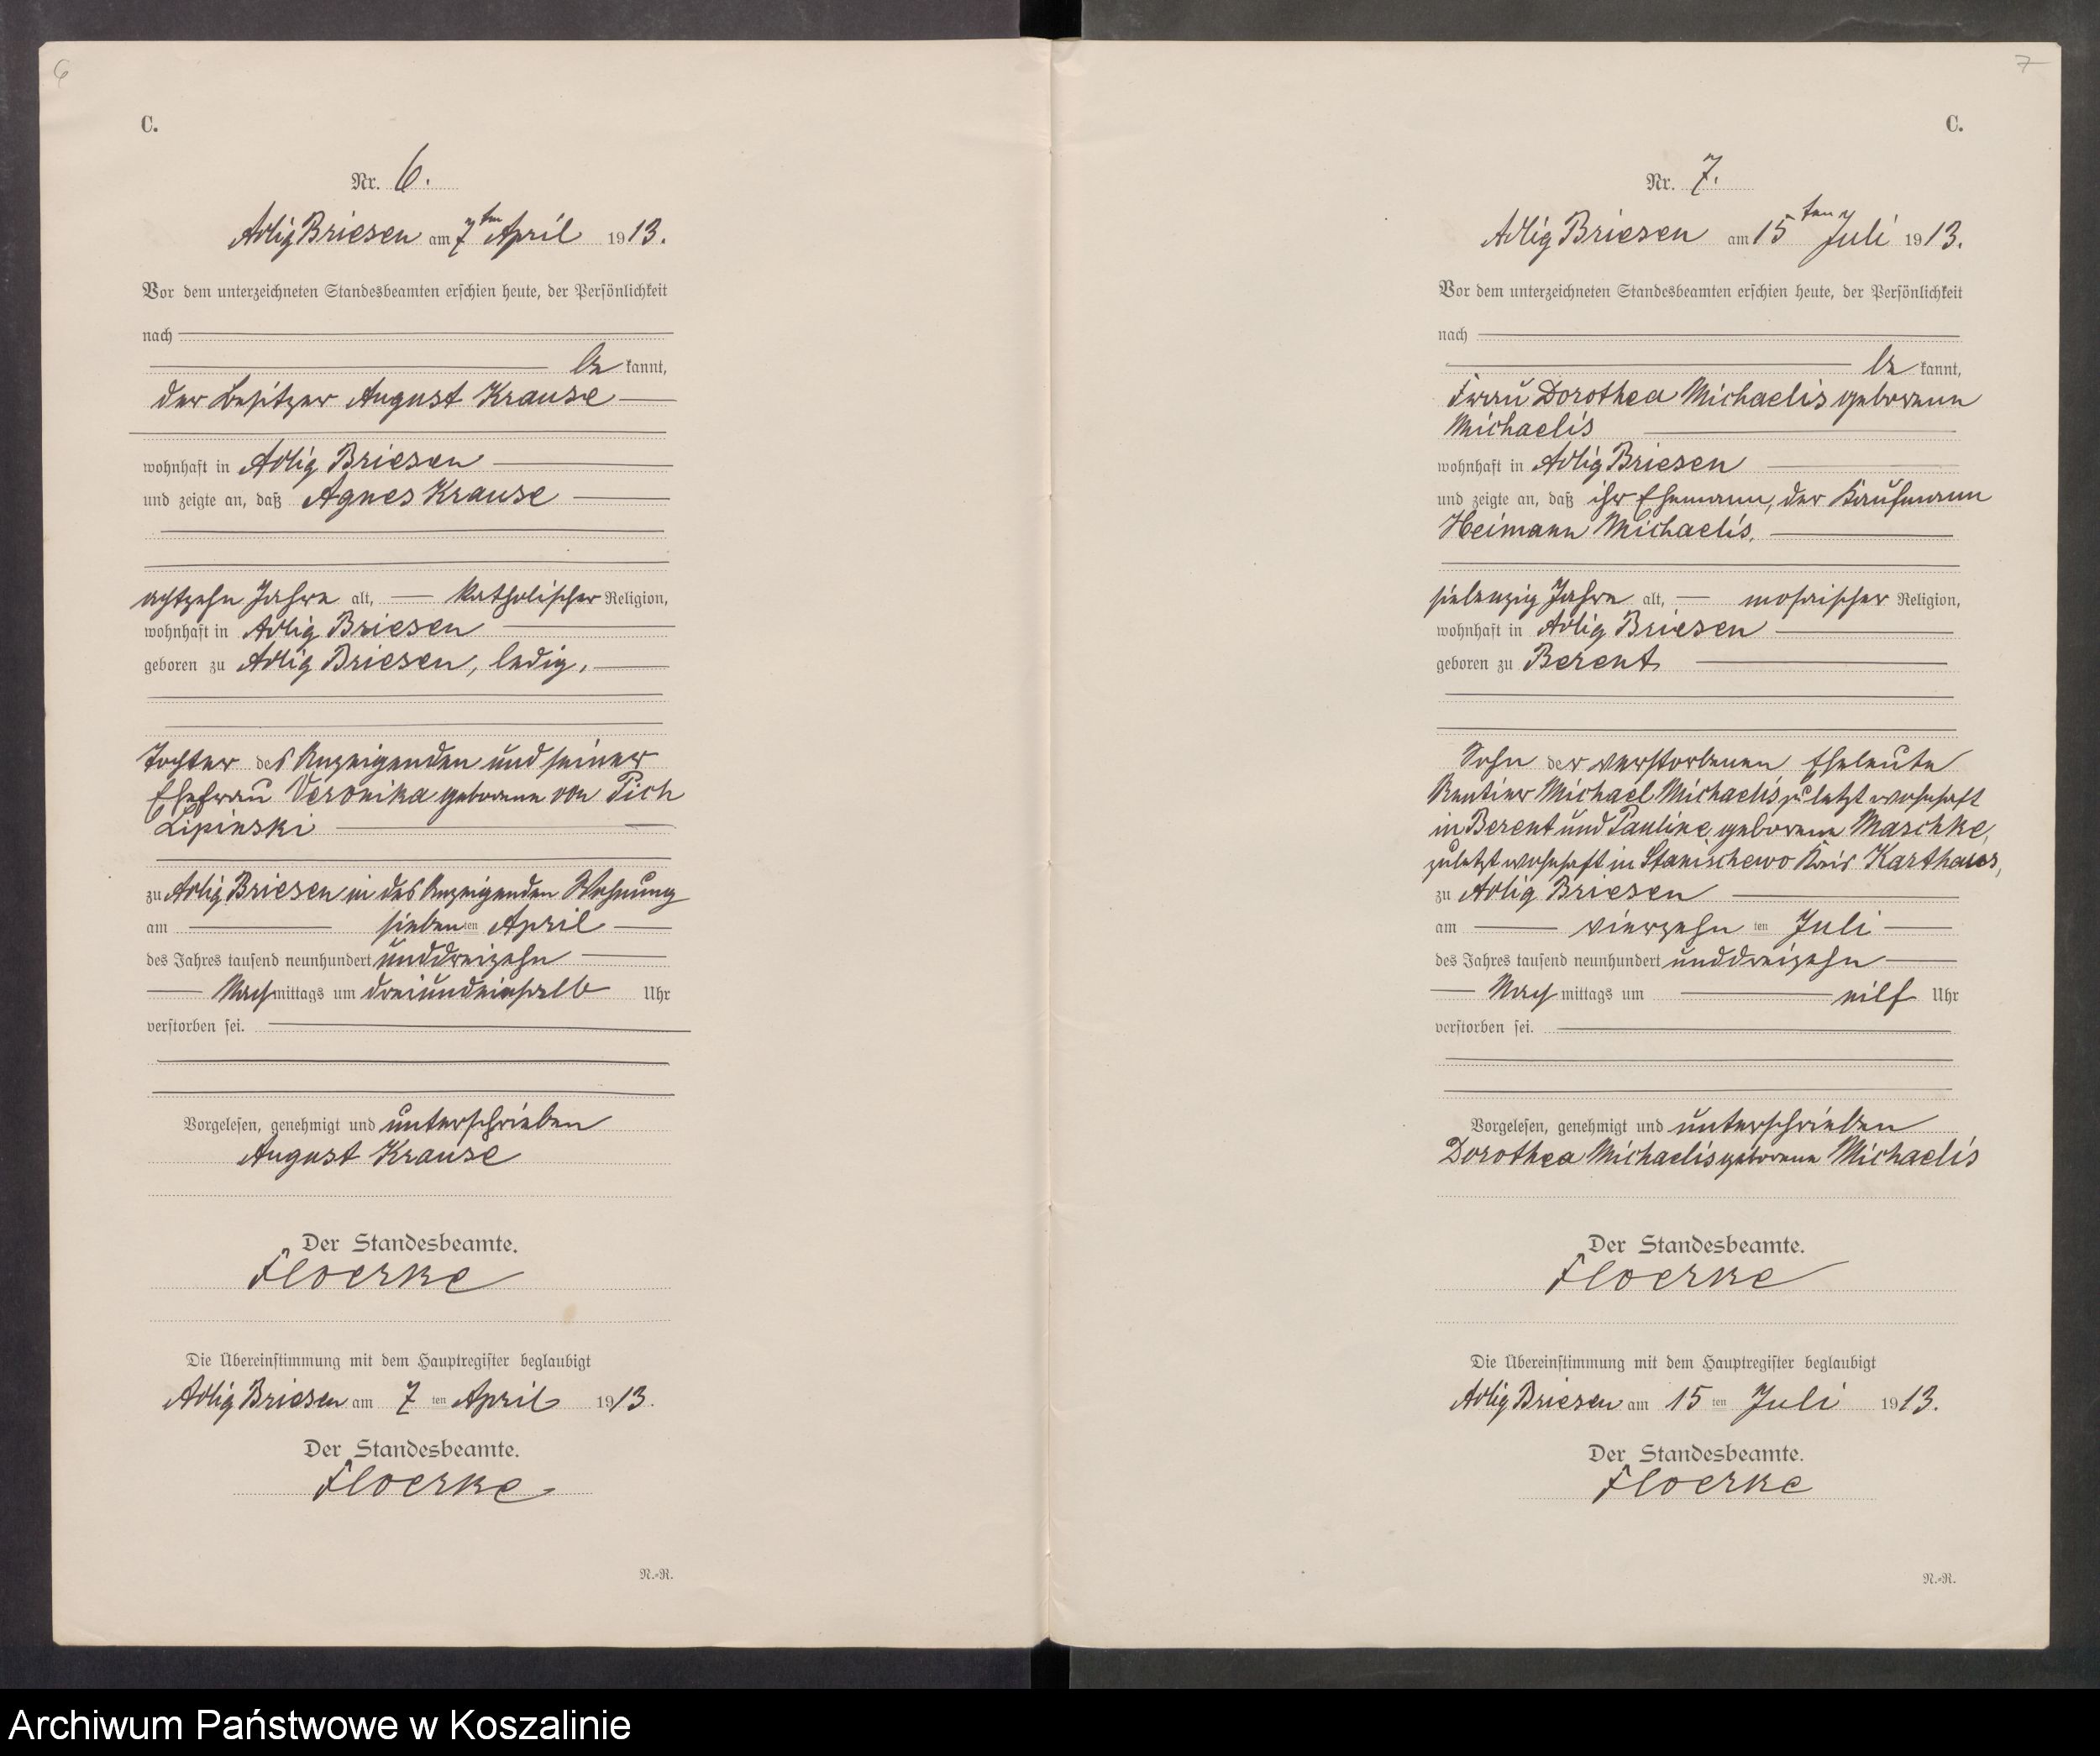 6
C.
Nr. 6.
Adlig Briesen am 7ten April 1913.
Vor dem unterzeichneten Standesbeamten erschien heute, der Persönlichkeit
nach
be kannt,
der Besitzer August Krause
wohnhaft in Adlig Briesen
und zeigte an, daß Agnes Krause
achtzehn Jahre alt, katholischer Religion,
wohnhaft in Adlig Briesen
geboren zu Adlig Briesen, ledig,
Tochter des Anzeigenden und seiner
Ehefrau Veronika geborene von Pich
Lipinski
zu Adlig Briesen in des Anzeigenden Wohnung
am sieben ten April
des Jahres tausend neunhundert unddreizehn
Nachmittags um dreiundeinhalb Uhr
verstorben sei.
Vorgelesen, genehmigt und unterschrieben
August Krause
Der Standesbeamte.
Floerke
Die Übereinstimmung mit dem Hauptregister beglaubigt
Adlig Briesen am 7 ten April 1913.
Der Standesbeamte.
Floerke
N.-R.
7
C.
Nr. 7.
Adlig Briesen am 15ten Juli 1913.
Vor dem unterzeichneten Standesbeamten erschien heute, der Persönlichkeit
nach
be kannt,
Frau Dorothea Michaelis geborene
Michaelis
wohnhaft in Adlig Briesen
und zeigte an, daß ihr Ehemann, der Kaufmann
Heimann Michaelis,
siebenzig Jahre alt, mosaischer Religion,
wohnhaft in Adlig Briesen
geboren zu Berent
Sohn der verstorbenen Eheleute
Rentier Michael Michaelis zuletzt wohnhaft
in Berent und Pauline geborene Maschke,
zuletzt wohnhaft in Stanischewo Kreis Karthaus,
zu Adlig Briesen
am vierzehn ten Juli
des Jahres tausend neunhundert unddreizehn
Nach mittags um eilf Uhr
verstorben sei.
Vorgelesen, genehmigt und unterschrieben
Dorothea Michaelis geborene Michaelis
Der Standesbeamte.
Floerke
Die Übereinstimmung mit dem Hauptregister beglaubigt
Adlig Briesen am 15 ten Juli 1913.
Der Standesbeamte.
Floerke
N.-R.
Archiwum Państwowe w Koszalinie